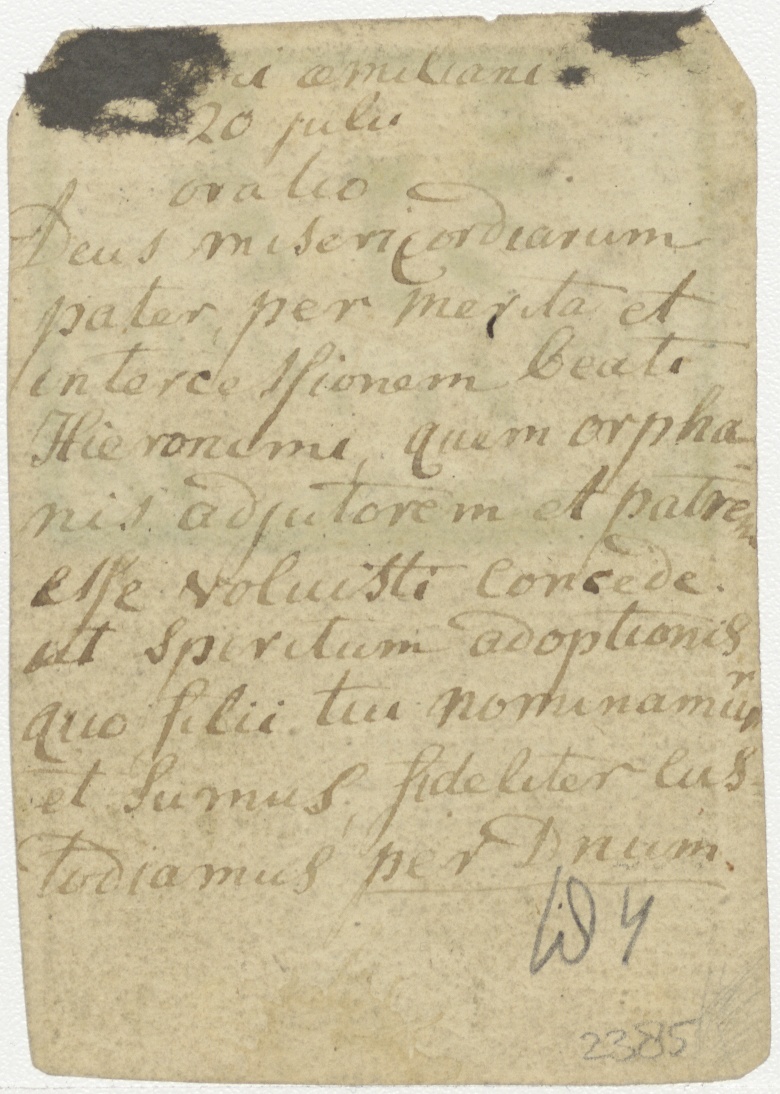 æmiliani
20 julii
oratio
Deus misericordiarum
pater, per merita et
intercessionem beati
Hieronimi, quem orpha-
nis adjutorem et patrem
esse voluisti concede.
ut spiritum adoptionis
quo filii tui nominamur
et sumus, fideliter cus-
todiamus per Dnum.
4
2385